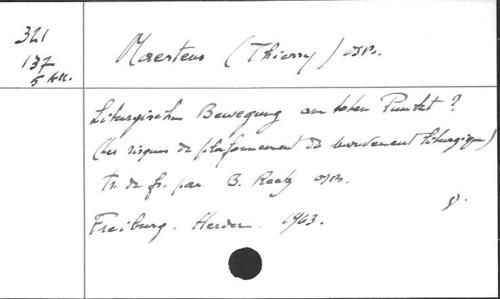 321
137
5 ex.
Maertens (Thierry) OSB.
Liturgischen Bewegung am toten Punkt ?
(Les risques de plafonnement du mouvement liturgique)
tr. de fr. par B. Reetz OSB.
Freiburg. Herder. 1963.
8°.